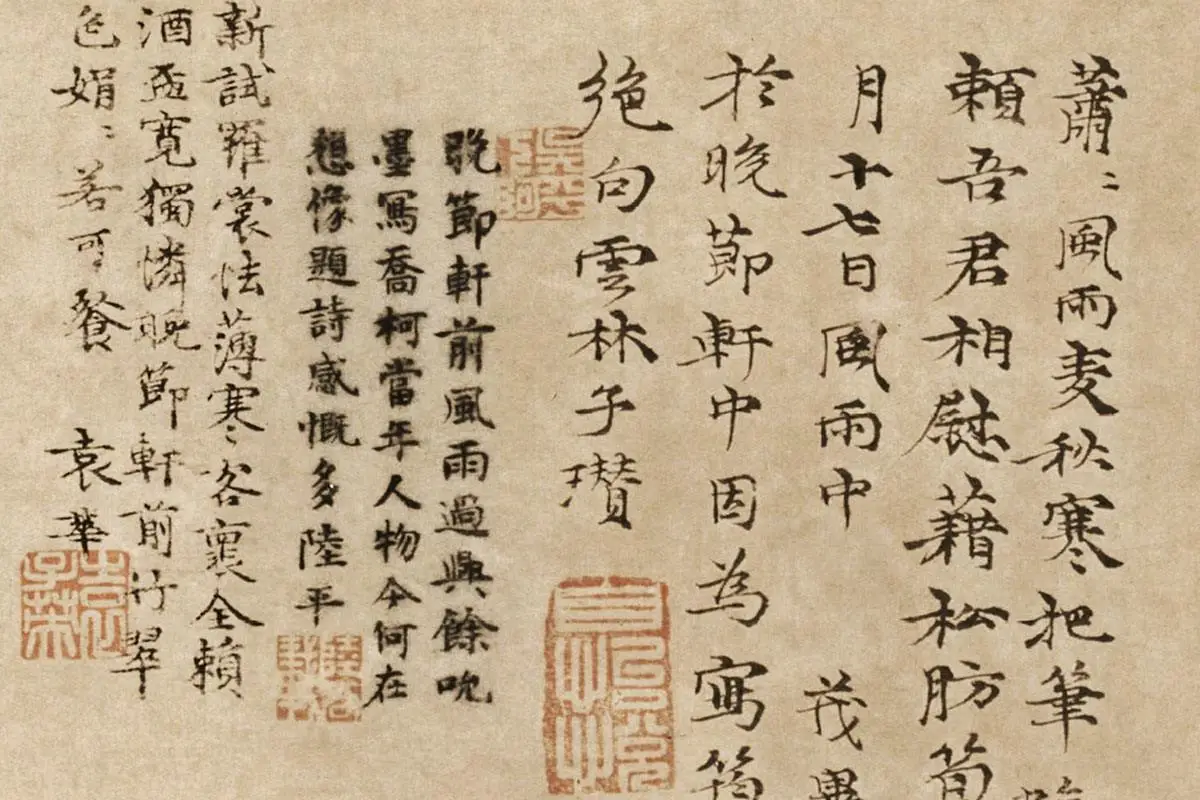 蕭〻風雨麦秋寒把筆
賴吾君相慰藉松肪筍
月十七日風雨中 茂
於晚節軒中因為寫筠
絶句雲林子瓚
晚節軒前風雨過興餘吮
墨寫喬柯當年人物今何在
想像題詩感慨多陸平
新試羅裳怯薄寒客褱全賴
酒盃寬獨憐晚節軒前竹翠
色娟〻若可餐 袁華